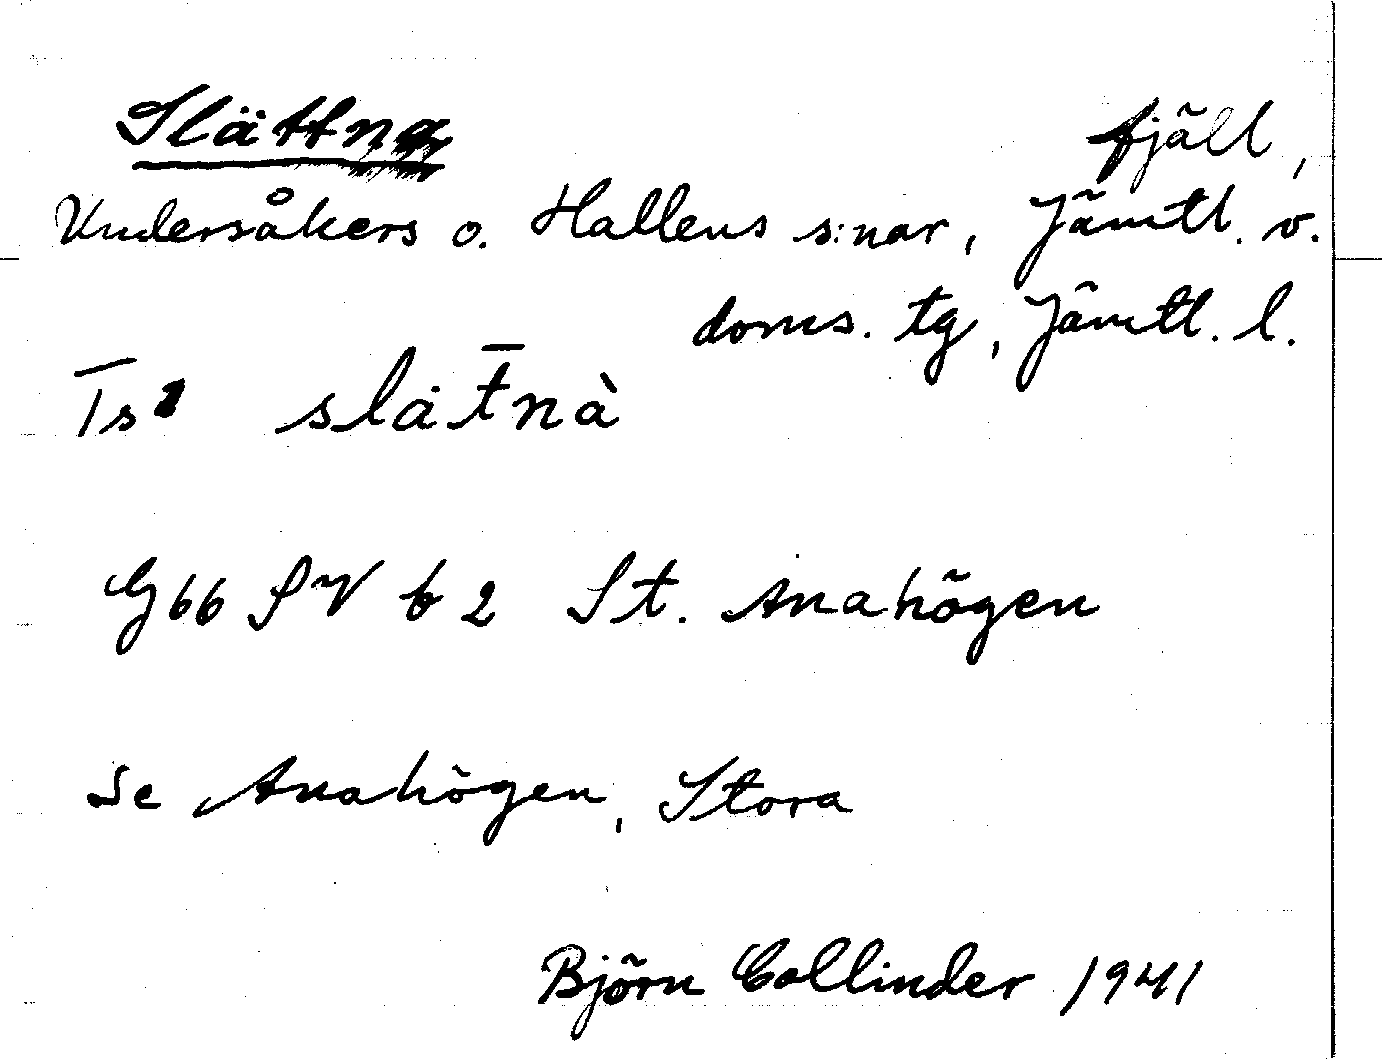 Slättna fjäll,
Undersåkers o. Hallens s:nar, Jämtl. v.
doms. tg, Jämtl. l.
Ts slät̄nà
G66 SV b 2 St. Anahögen
Se Anahögen, Stora
Björn Collinder 1941